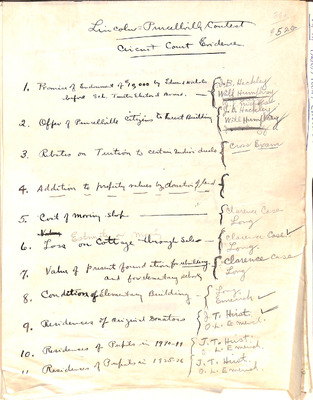 Lincoln-Purcellville Contest
Circuit Court Evidence
1. Promise of Endowment of $10,000 by Edward
before Sch. Trustees
Will Humphrey
2. Offer of Purcellville Citizens to Erect Building
Will Humphrey
3. Rbates on Tuition to certain Individuals
Cross Exam
4. Addition to property values by donation of land
5. Cost of moving shop
Clarence Case
Long
6. Loss on Cottage through Sale
Clarence Case
Long.
7. Value of present foundation for building
and for elementary school
Clarence Case
Long
8. Condition of Elementary Building
Long
9. Residences of Original Donators
J. T. Hirst
O. L. Emerick
10. Residences of Pupils in 1910-11
J. T. Hirst
O. L. Emerick
11 Residences of Pupils in 1925-26
J. T. Hirst.
O. L. Emerick